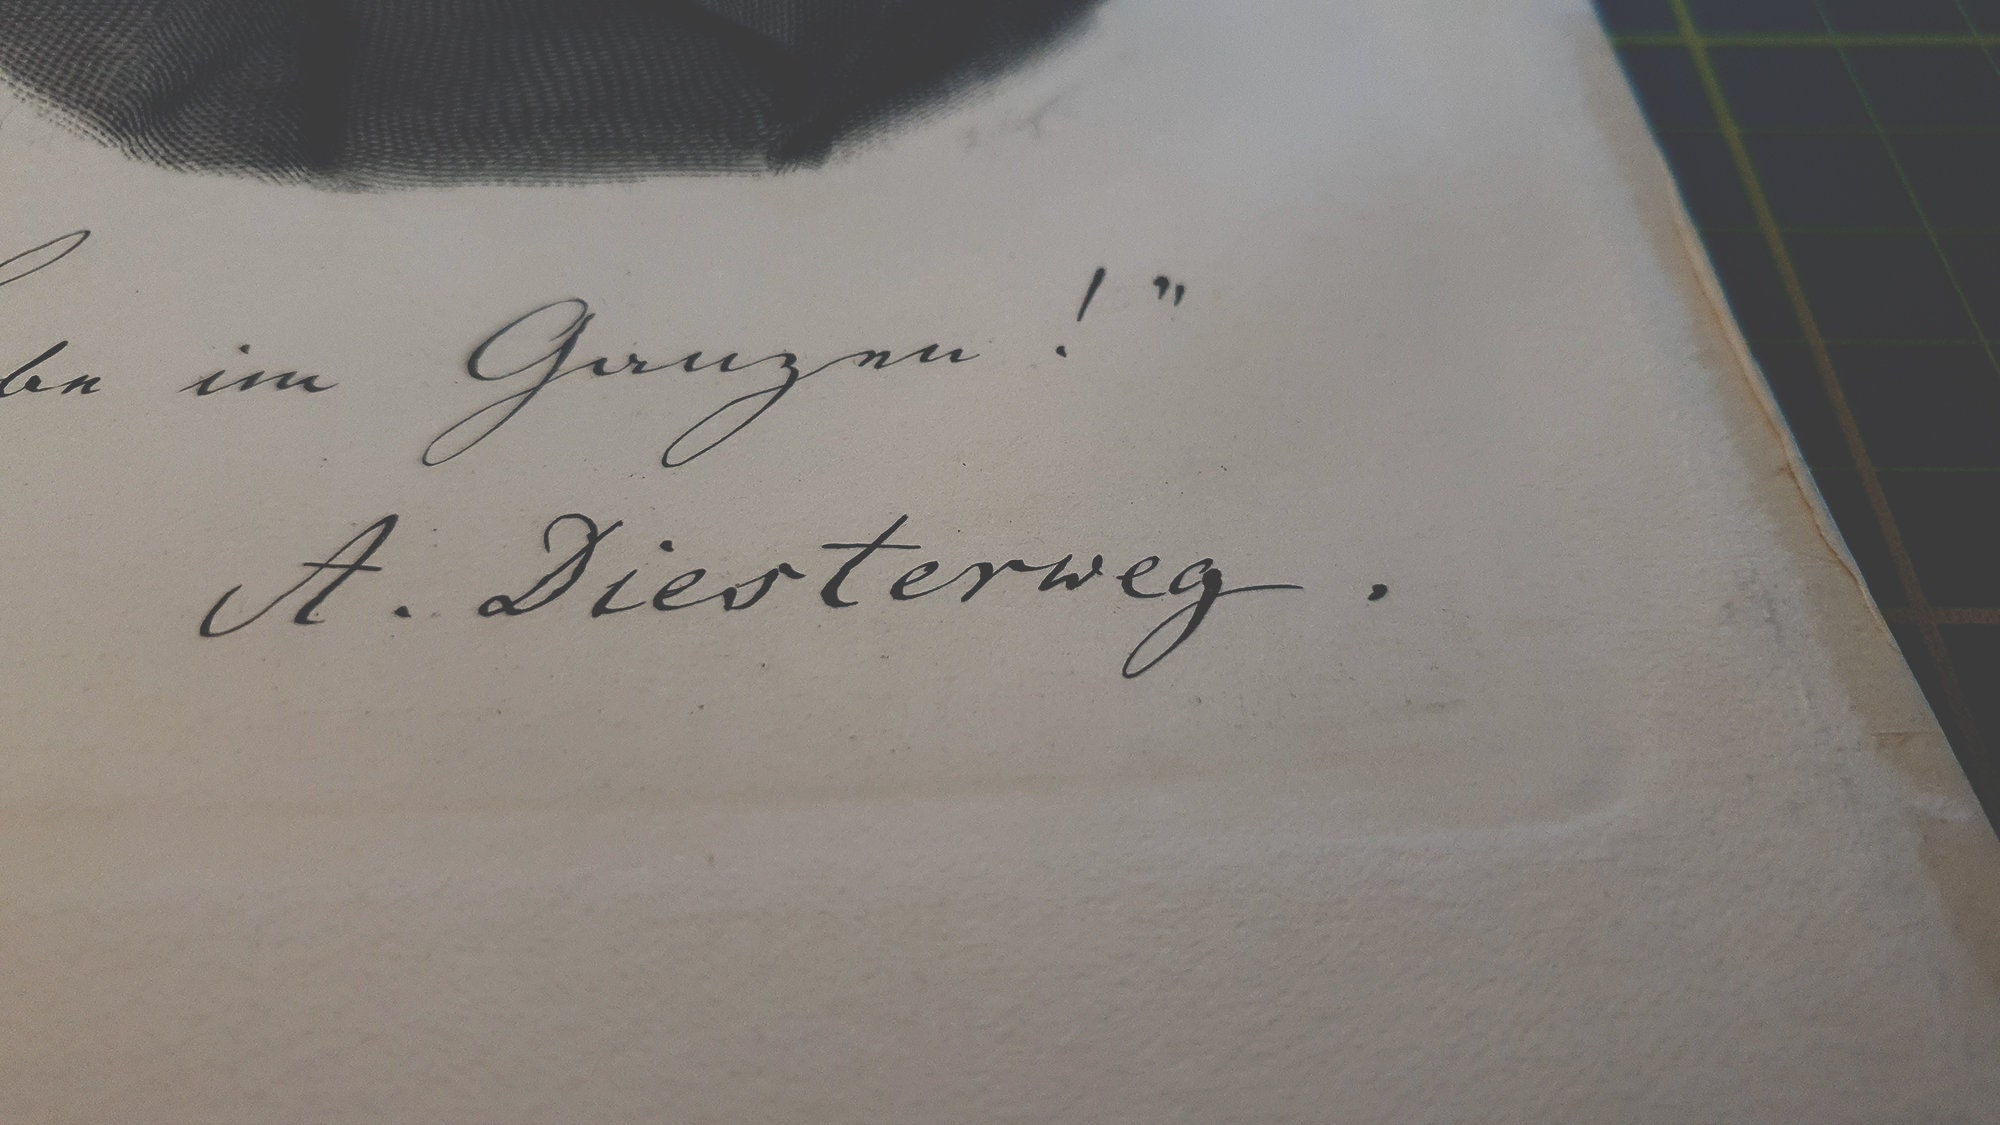 be im Ganzen!"
A. Diesterweg.